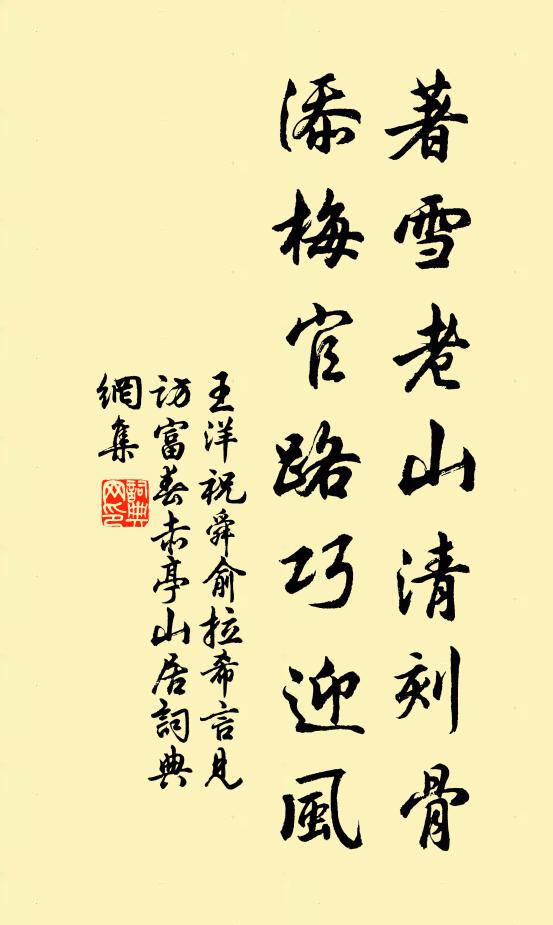 著雪老山清刻骨
添梅官路巧迎風
王洋祝舜俞拉希言見
訪富春赤亭山居詞典
網集
詞典
网印